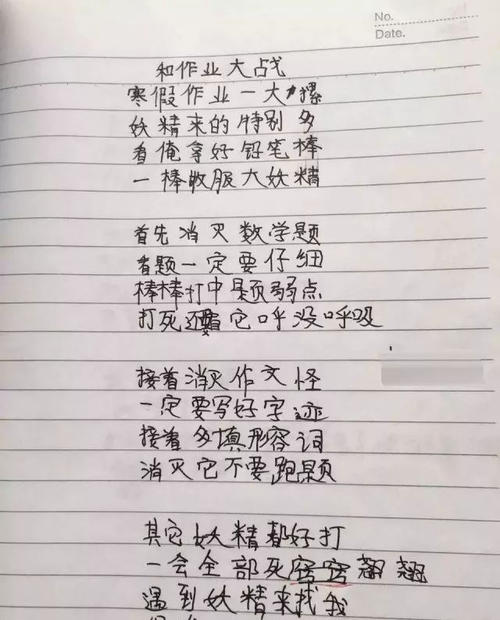 No.
Date.
和作业大战
寒假作业一大摞
妖精来的特别多
看俺拿好铅笔棒
一棒收服大妖精
首先消灭数学题
看题一定要仔细
棒棒打中题弱点
打死还看它呼没呼吸
接着消灭作文怪
一定要写好字迹
接着多填形容词
消灭它不要跑题
其它妖精都好打
一会全部死窍窍翘翘
遇到妖精来找我